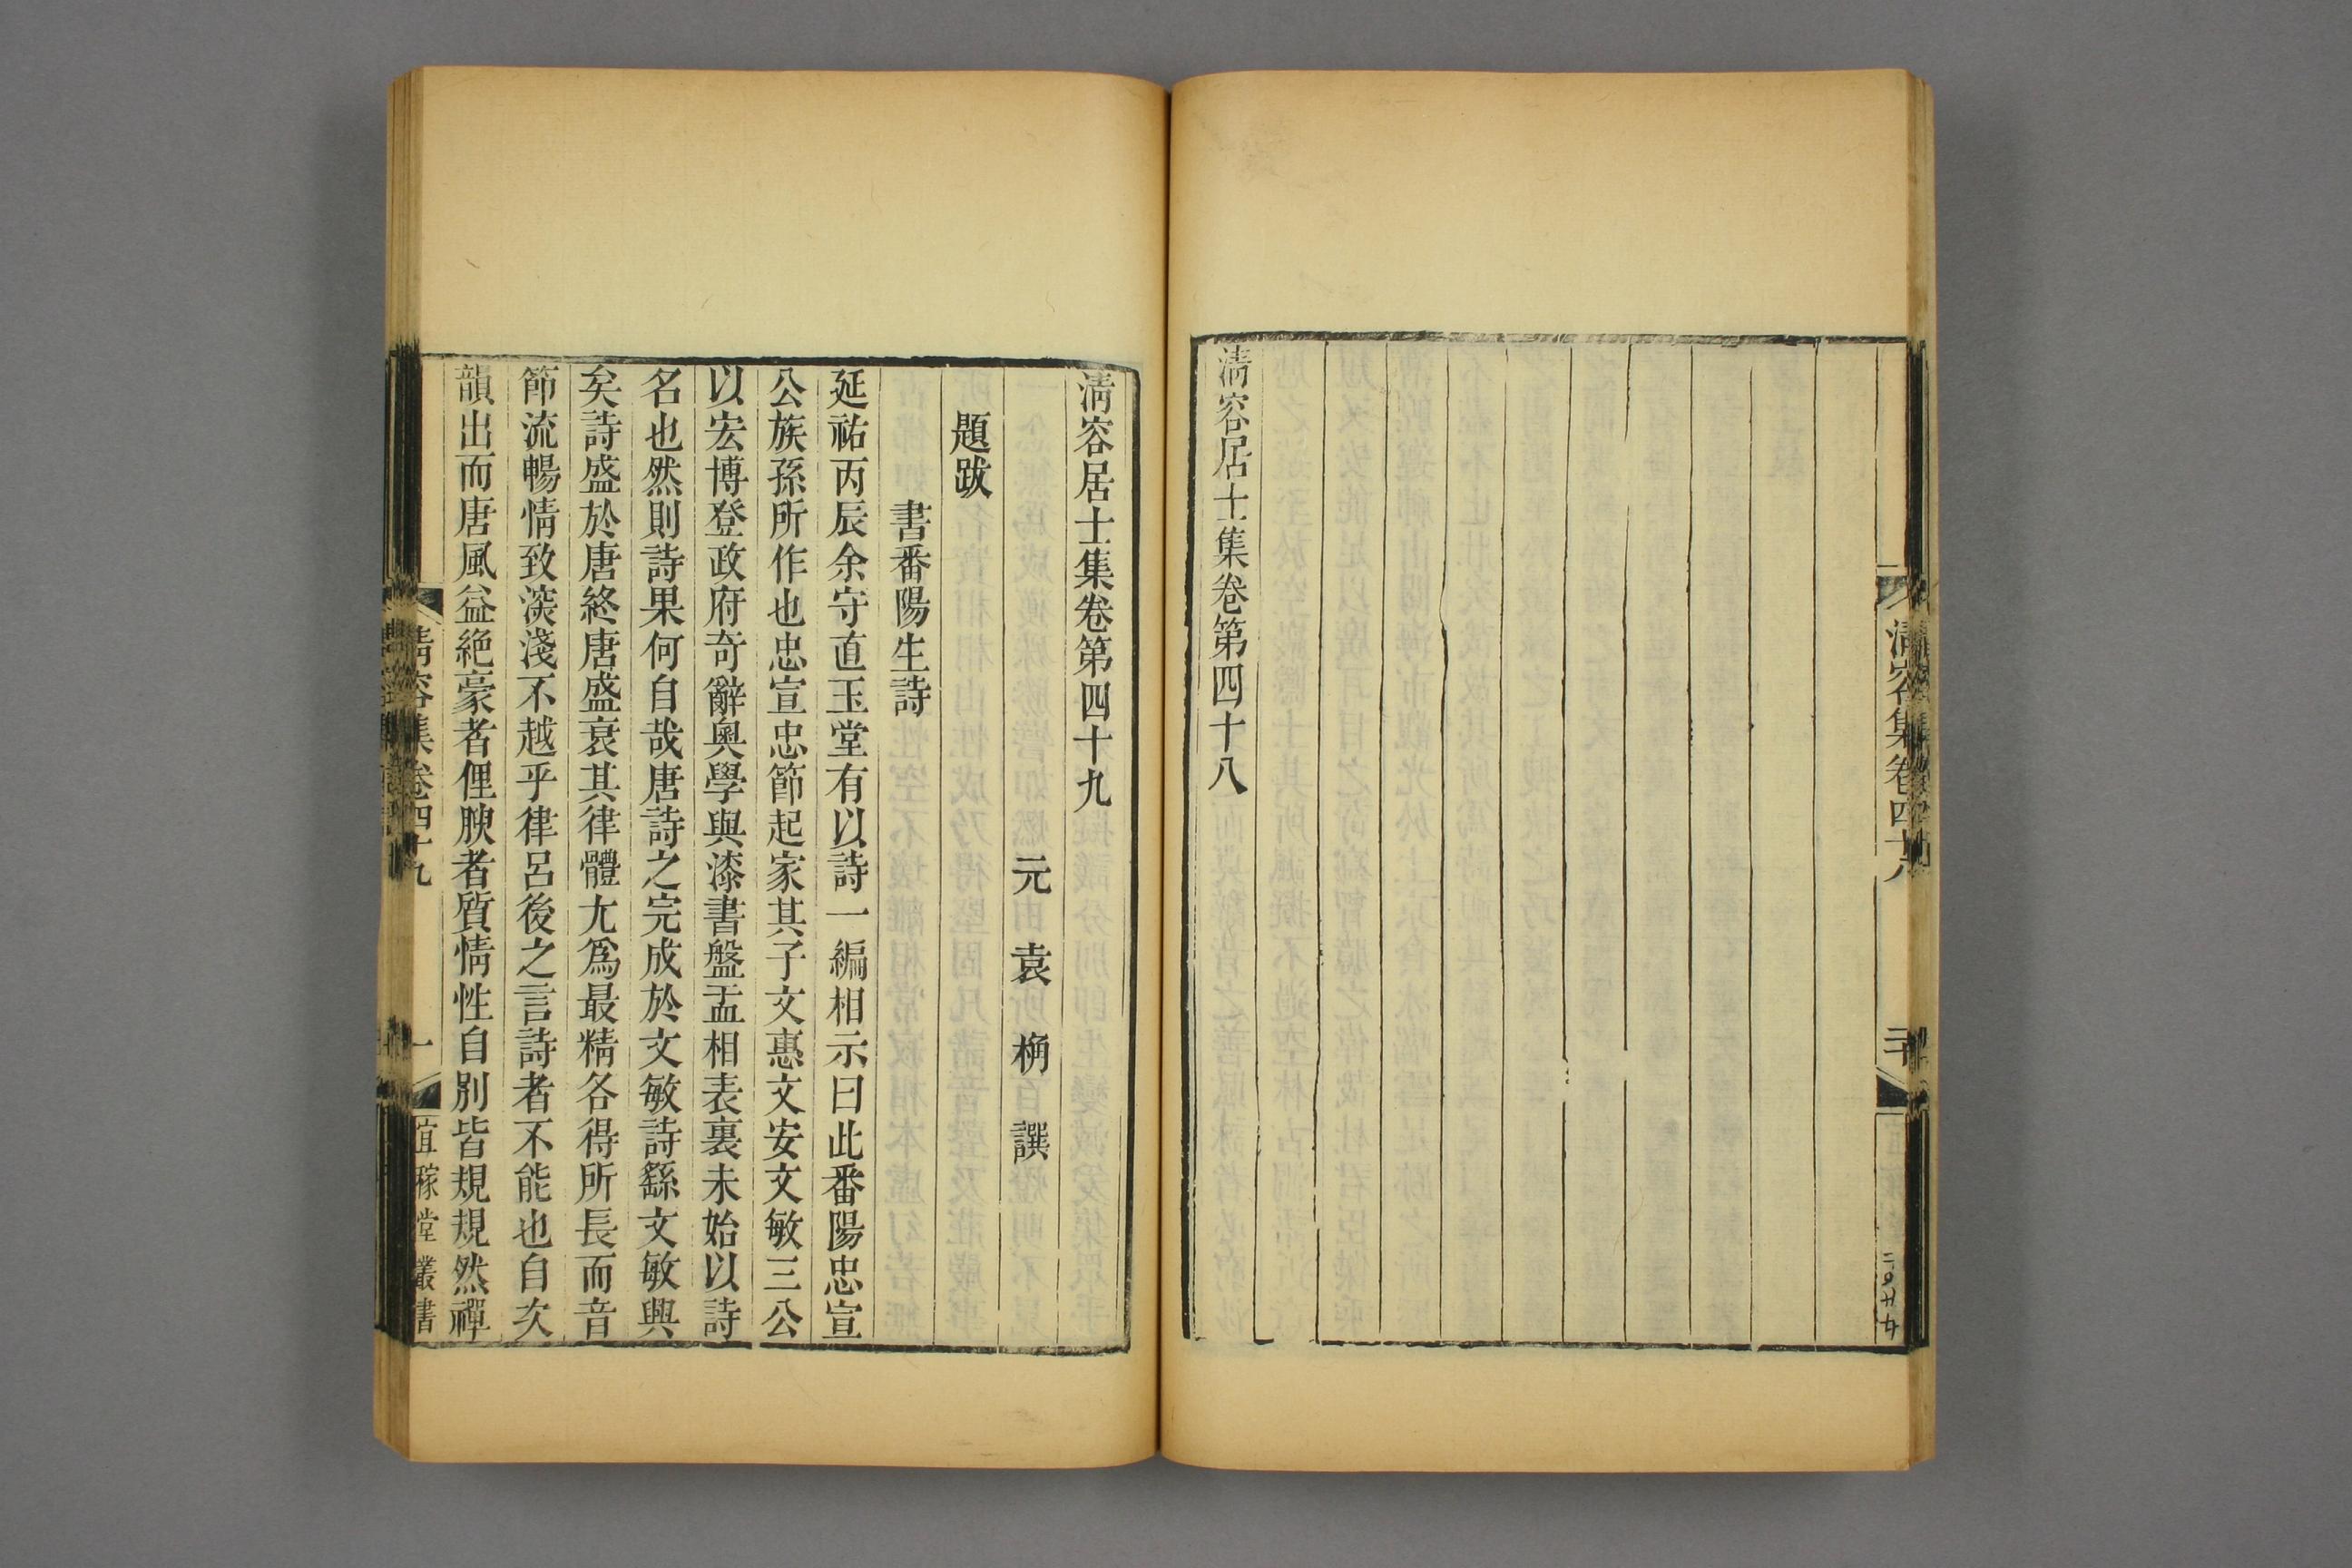 清容集卷四十八
清容居士集卷第四十八
清容居士集卷第四十九
元袁桷譔
題跋
書番陽生詩
延祐丙辰余守直玉堂有以詩一編相示曰此番陽忠宣
公族孫所作也忠宣忠節起家其子文惠文安文敏三公
以宏博登政府奇辭奧學與漆書盤盂相表裏未始以詩
名也然則詩果何自哉唐詩之完成於文敏詩繇文敏興
矣詩盛於唐終唐盛衰其律體尤爲最精各得所長而音
節流暢情致深淺不越乎律呂後之言詩者不能也自次
韻出而唐風益絕豪者俚腴者質情性自別皆規規然禪
清容集卷四十九
一
宜稼堂叢書